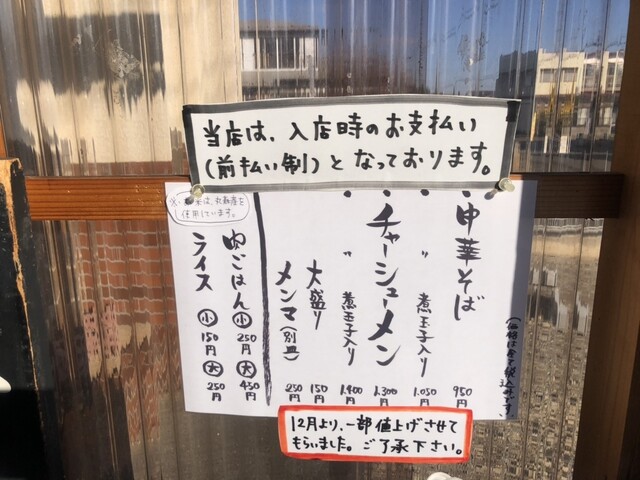 当店は、入店時のお支払い
(前払い制)となっております。
・中華そば 950
〃 煮玉子入り 1.050
・チャーシューメン 1.300
〃 煮玉子入り 1.400
大盛り 150
メンマ(別皿) 250円
肉ごはん 小 250円 大 450円
ライス 小 150円 大 250円
は、丸勘産を
使用しています。
(価格は全て税込みです。)
12月より、一部値上げさせて
もらいました。ご了承下さい。